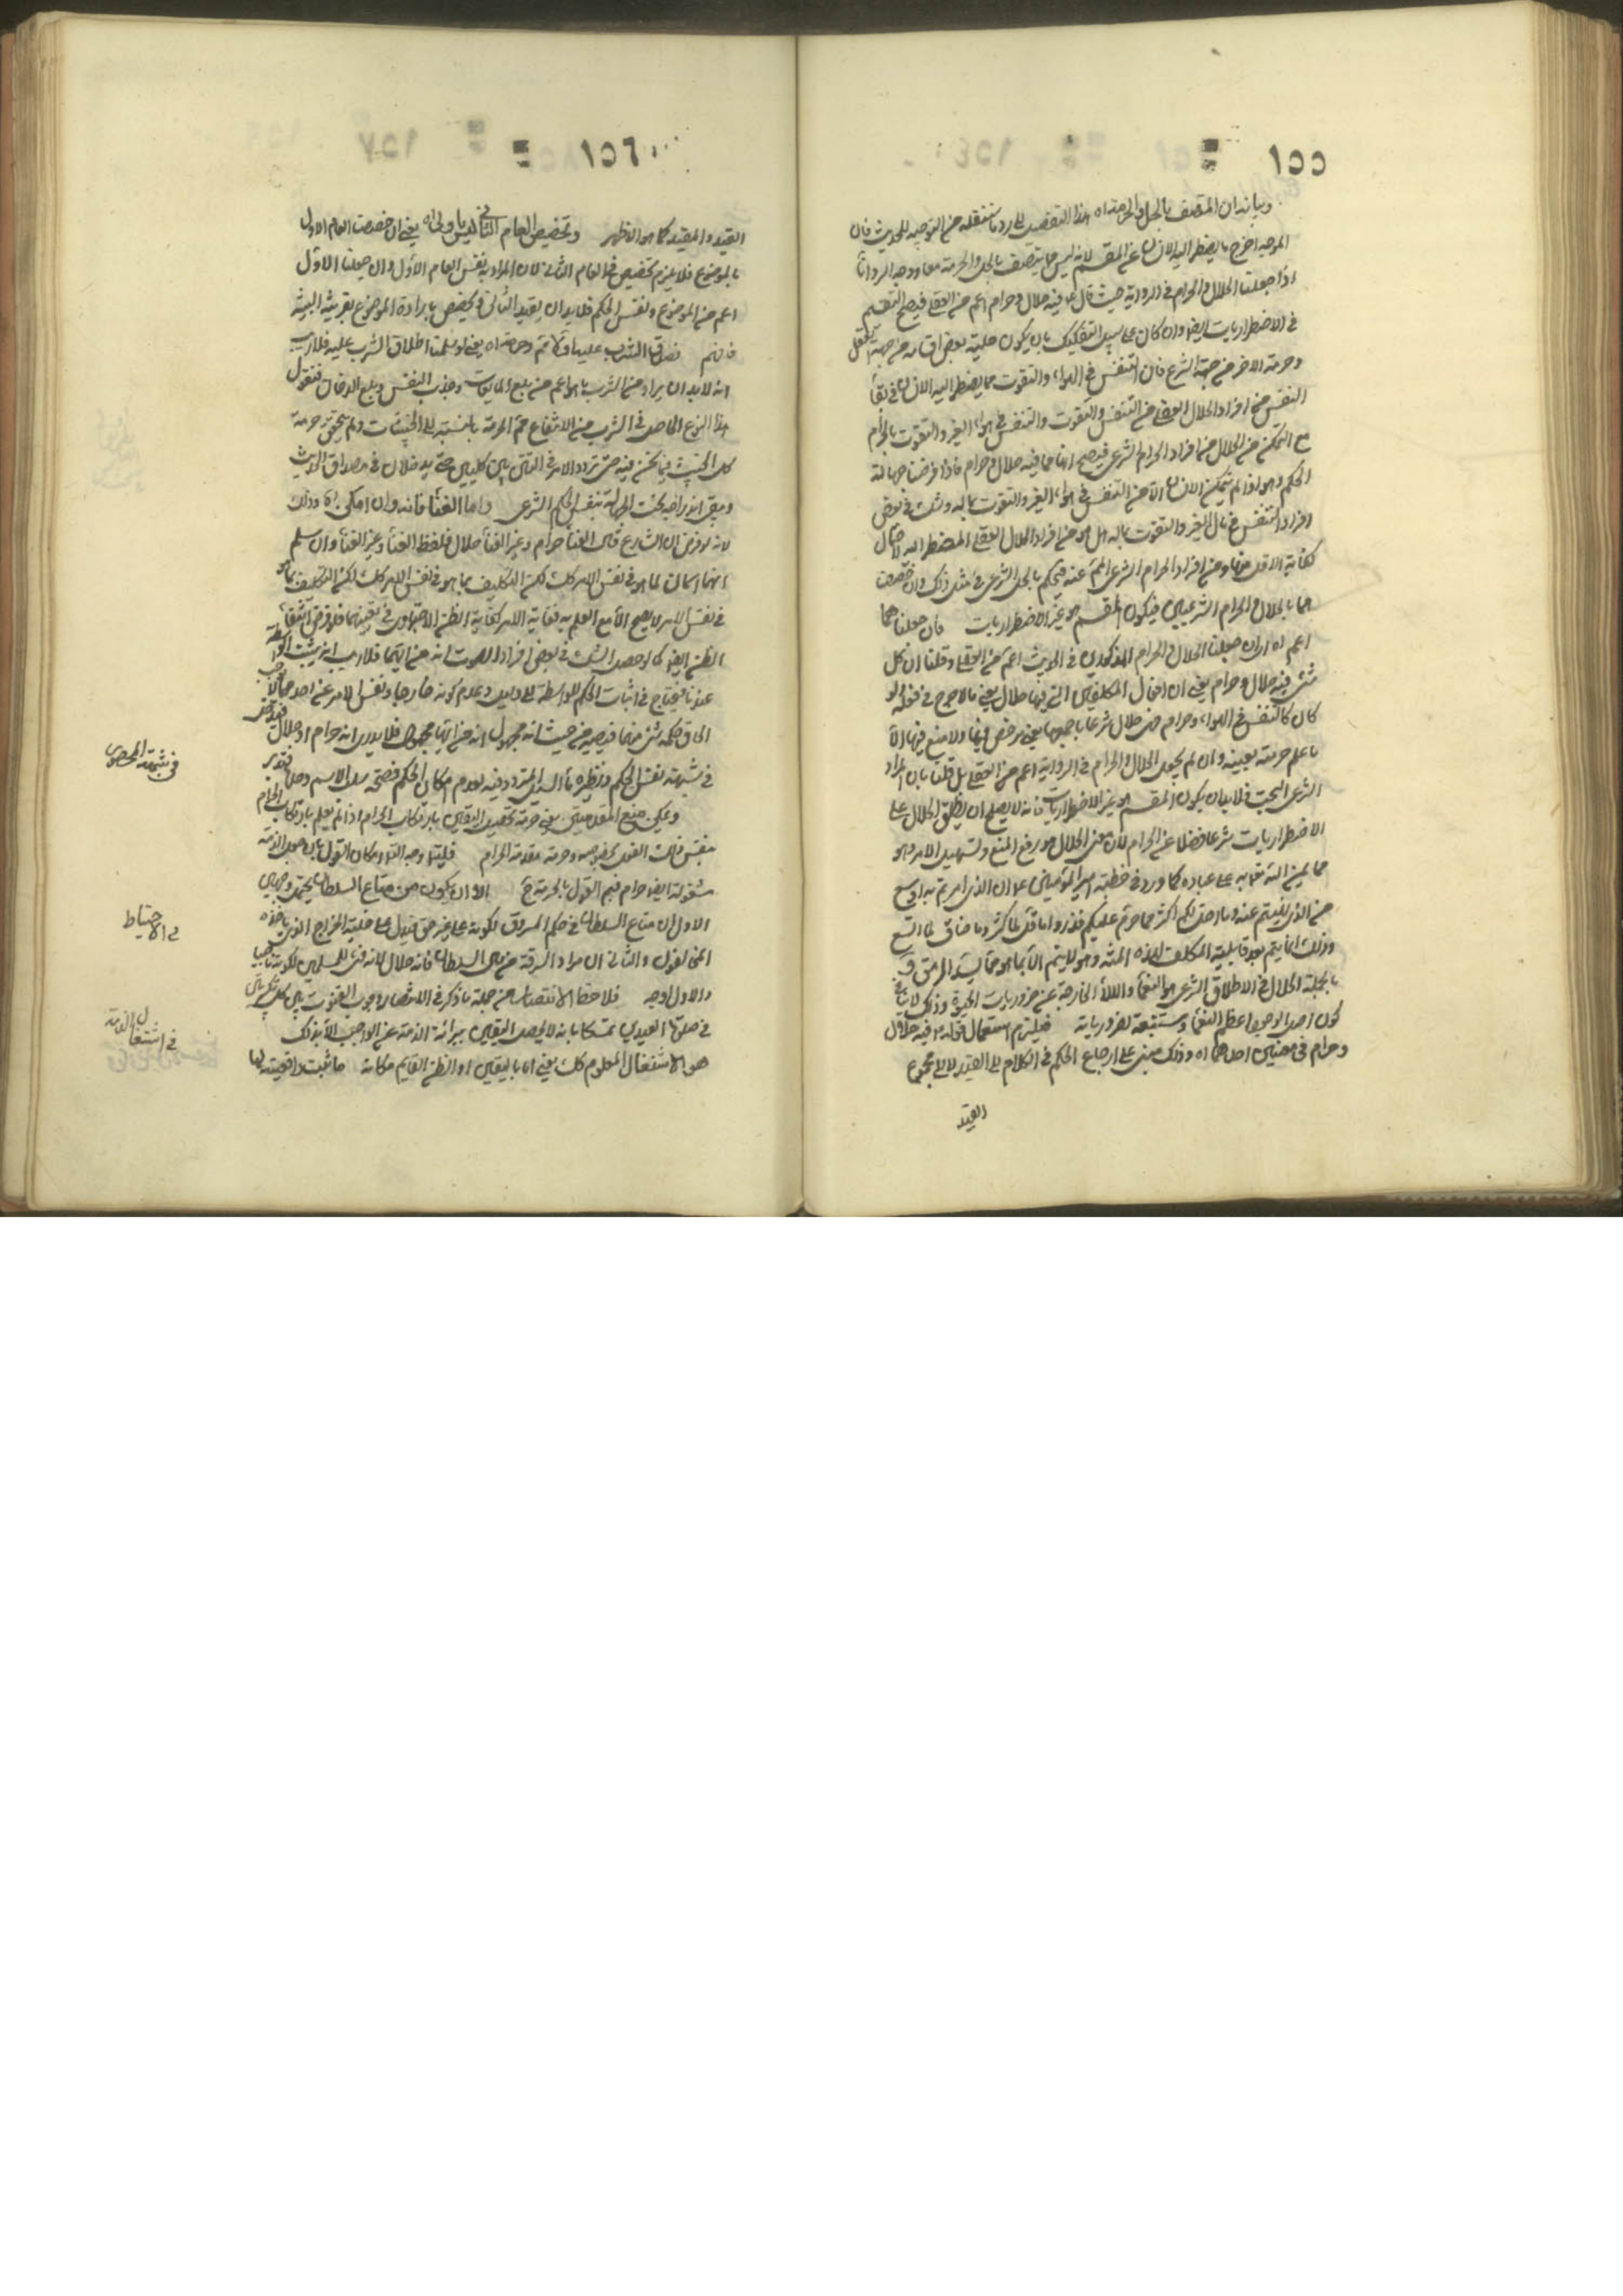 ١٥٥
وبيانه ان المتصف بالحل والحرمة اه هذا التفصيل للرد ما سننقله من التوجيه للحديث فان
الموجه اخرج ما يضطر اليه الانسان عن المقسم لانه ليس مما يتصف بالحل والحرمة معا ووجه الرد انا
اذا جعلنا الحلال والحرام في الرواية حيث قال فيه حلال وحرام اعم من العقلي فيصح التقسيم
في الاضطراريات ايضا وان كان على سبيل التفكيك بان يكون حلية بعض اقسامه من جهة العقل
وحرمة الاخر من جهة الشرع فان التنفس في الهواء والتقوت مما يضطر اليه الانسان في بقاء
النفس من افراد الحلال العقلي من التنفس والتقوت والتنفس في هواء الغير والتقوت بالحرام
مع التمكن من الحلال من افراد الحرام الشرعي فيصح انها مما فيه حلال وحرام فاذا فرضنا جهالة
الحكم وهو اذا لم يتمكن الانسان الا من التنفس في هواء الغير والتقوت بماله وشك في بعض
افراد التنفس في مال الغير والتقوت بماله هل هو من افراد الحلال العقلي المضطر اليه لاحتمال
كفاية الاقل منها ومن افراد الحرام الشرعي فيحكم بالحل الشرعي في مثل ذلك وان خصصت
هما بالحلال والحرام الشرعيين فيكون المقسم هو غير الاضطراريات فان جعلناهما
اعم اه اى ان جعلنا الحلال والحرام المذكورين في الحديث اعم من العقلي وقلنا ان كل
شئ فيه حلال وحرام يعني ان افعال المكلفين التي فيها حلال يعني ما لا حرج في فعله ولو
كان كالتنفس في الهواء وحرام هي حلال شرعا باجمعها يعني مرخص فيها ولا منع فيها الا
ما علم حرمته بعينه وان لم يجعل الحلال والحرام في الرواية اعم من العقلي بل قلنا بان المراد
الشرعي البحت فلا بد ان يكون المقسم هو غير الاضطراريات فانه لا يصلح ان يطلق الحلال على
الاضطراريات شرعا فضلا عن الحرام لان معنى الحلال هو رفع المنع وتسهيل الامر وهو
مما يمن الله تعالى به على عباده كما ورد في خطبة امير المؤمنين ان الذي امرتم به اوسع
من الذي نهيتم عنه وما احل لكم اكثر مما حرم عليكم فذروا ما قل لما كثر وما ضاق لما اتسع
وذلك انما يتم بعد قابلية المكلف لهذه المنة وهو لا يتم الا بما هو مما يسد الرمق و
بالجملة الحلال في الاطلاق الشرعي هو النعماء والآلاء الخارجة عن ضروريات الحيوة وذلك لا ينافي
كون اصل الوجود اعظم النعماء ومستتبعة لضرورياته فيلزم استعمال قوله فيه حلال
وحرام في معنيين احدهما اه وذلك مبني على ارجاع الحكم في الكلام الى القيد لا الى مجموع
القيد
١٥٦
القيد والمقيد كما هو الاظهر وتخصيص العام الثاني ليس باولى اه يعني ان خصصت العام الاول
بالموضوع فلا يلزم تخصيص في العام الثاني لان المراد به نفس العام الاول وان جعلنا الاول
اعم من الموضوع ونفس الحكم فلا بد ان يقيد الثاني ويخصص بارادة الموضوع بقرينة البينة
فافهم فصدق الشرب عليهما وكلاهما اه يعني لو سلمنا اطلاق الشرب عليه فلا ريب
انه لا بد ان يراد من الشرب ما هو اعم من بلع المايعات وجذب النفس وبلع الدخان فنقول
هذا النوع الحاصل في الشرب من الانتفاع حتم الحرمة بالنسبة الى الخبيثات ولم يتحقق حرمة
كل الخبيث فيما نحن فيه حتى تردد الامر في التتن بين كليين حتى يدخلان في مصداق الحديث
ويبقى اندراجه تحت الجهالة بنفس الحكم الشرعي واما الغناء فانه وان امكن اه وذلك
لانه لو فرض ان الشارع قال الغناء حرام وغير الغناء حلال فلفظ الغناء وغير الغناء وان سلم
انهما اسمان لما هو في نفس الامر كك لكن التكليف بما هو في نفس الامر كك لكن التكليف بما هو
في نفس الامر لا يصح الا مع العلم به فغاية الامر كفاية الظن الاجتهادي في تعيينهما فلو فرض انتفاء
الظن ايضا كما لو حصل الشك في بعض افراد الصوت انه من ايهما فلا ريب انه يثبت الواسطة
عندنا فيحتاج في اثبات الحكم للواسطة الى دليل وعدم كونه خارجا ونفس الامر عن احدهما لا يوجب
الحاق حكمه شئ منهما فيصير من حيث انه مجهول انه من ايهما مجهول فلا يدرى انه حرام او حلال فيدخل
في شبهة نفس الحكم ونظيره مال السيد المتردد فيه لعدم امكان الحكم فصحة سلب الاسم وحملها فتدبر
ويمكن منع المقدمتين يعني حرمة تحصيل اليقين بارتكاب الحرام اذا لم يعلم بارتكاب الحرام
بنفس ذلك الفعل بخصوصه وحرمة مقدمة الحرام قلت وجه التامل امكان القول بان جعل الذمة
مشغولة ايضا حرام فيتم القول بالحرمة ح الا ان يكون من متاع السلطان يحتمل وجهين
الاول ان متاع السلطان في حكم المسروق لكونه على وجه غير حق فيدل على حلية الخراج الذي ياخذه
المخالفون والثاني ان مراد السرقة من مال السلطان فانه حلال لانه فيئ للمسلمين لكونه ناصبيا
والاول اوجه فلاحظ الانتصار من جملة ما ذكر في الانتصار وجوب القنوت بين كل تكبيرتين
في صلوة العيدين تمسكا بانه لا يحصل اليقين ببرائة الذمة عن الواجب الا بذلك
هو الاشتغال المعلوم كك يعني اما باليقين او الظن القايم مكانه ما ثبت واقعيته لها
في شبهة المحصورة
في الاحتياط
في اشتغال الذمة